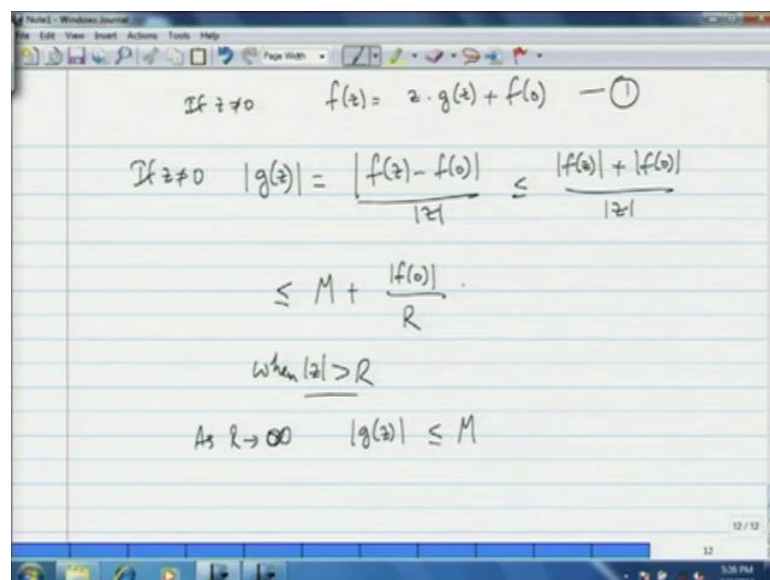 Note1 - Windows Journal
File Edit View Insert Actions Tools Help
Page Width
If z≠0 f(z) = z·g(z) + f(0) — ①
If z≠0 |g(z)| = |f(z) - f(0)| / |z| ≤ |f(z)| + |f(0)| / |z|
≤ M + |f(0)| / R .
when |z| > R
As R → ∞ |g(z)| ≤ M
12 / 12
12
5:26 PM